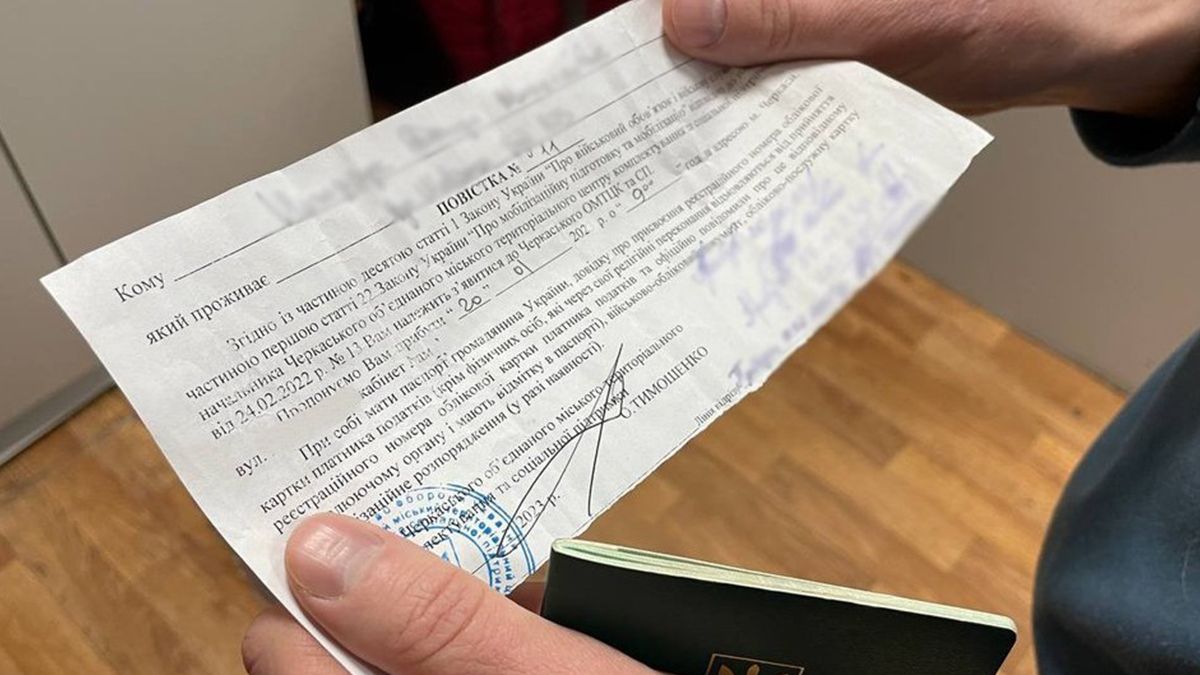 ПОВІСТКА № 011
Кому
який проживає
Згідно із частиною десятою статті 1 Закону України "Про військовий обов'язок і військову
частиною першою статті 22 Закону України "Про мобілізаційну підготовку та мобілізацію"
начальника Черкаського об'єднаного міського територіального центру комплектування та соціальної
від 24.02.2022 р. № 13 Вам належить з'явитися до Черкаського ОМТЦК та СП.
Пропонуємо Вам прибути "20" 01 202 р. о "9⁰⁰" год. за адресою м. Черкаси,
вул. кабінет
При собі мати паспорт громадянина України, довідку про присвоєння реєстраційного номера облікової
картки платника податків (крім фізичних осіб, які через свої релігійні переконання відмовляються від прийняття
реєстраційного номера облікової картки платника податків та офіційно повідомили про це відповідному
органу і мають відмітку в паспорті), військово-обліковий документ, обліково-послужну картку
розпорядження (у разі наявності).
Черкаського об'єднаного міського територіального
та соціальної підтримки
О. ТИМОШЕНКО
2023 р.
Лінія